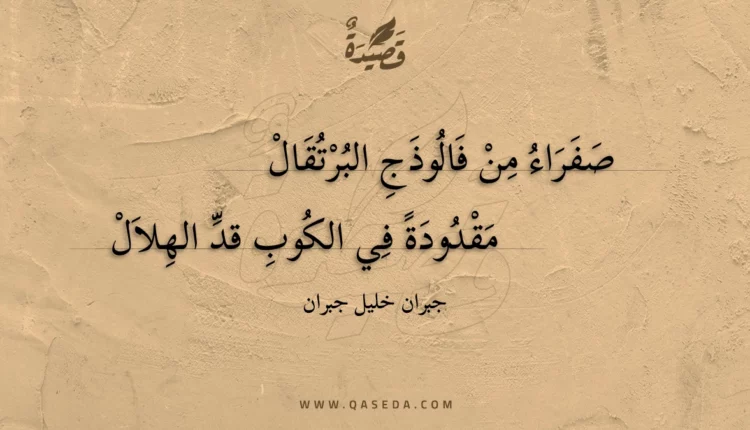 قَصِيْدَةٌ
صَفَرَاءُ مِنْ فَالُوذَجِ البُرْتُقَالْ
مَقْدُودَةً فِي الكُوبِ قدِّ الهِلاَلْ
جبران خليل جبران
WWW.QASEDA.COM